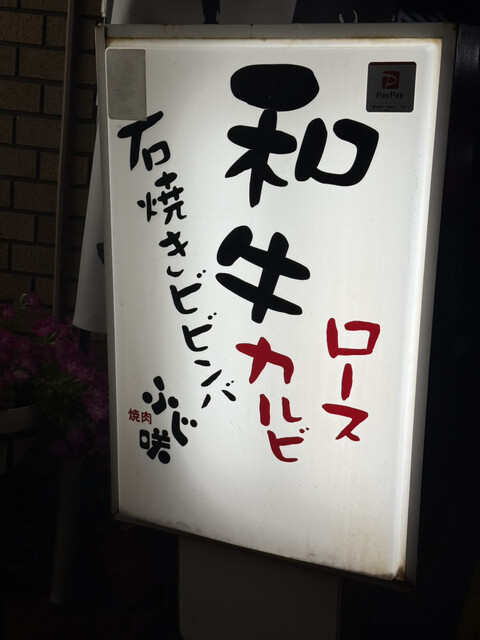 和牛
ロース
カルビ
石焼きビビンバ
焼肉
ふじ咲
PayPay